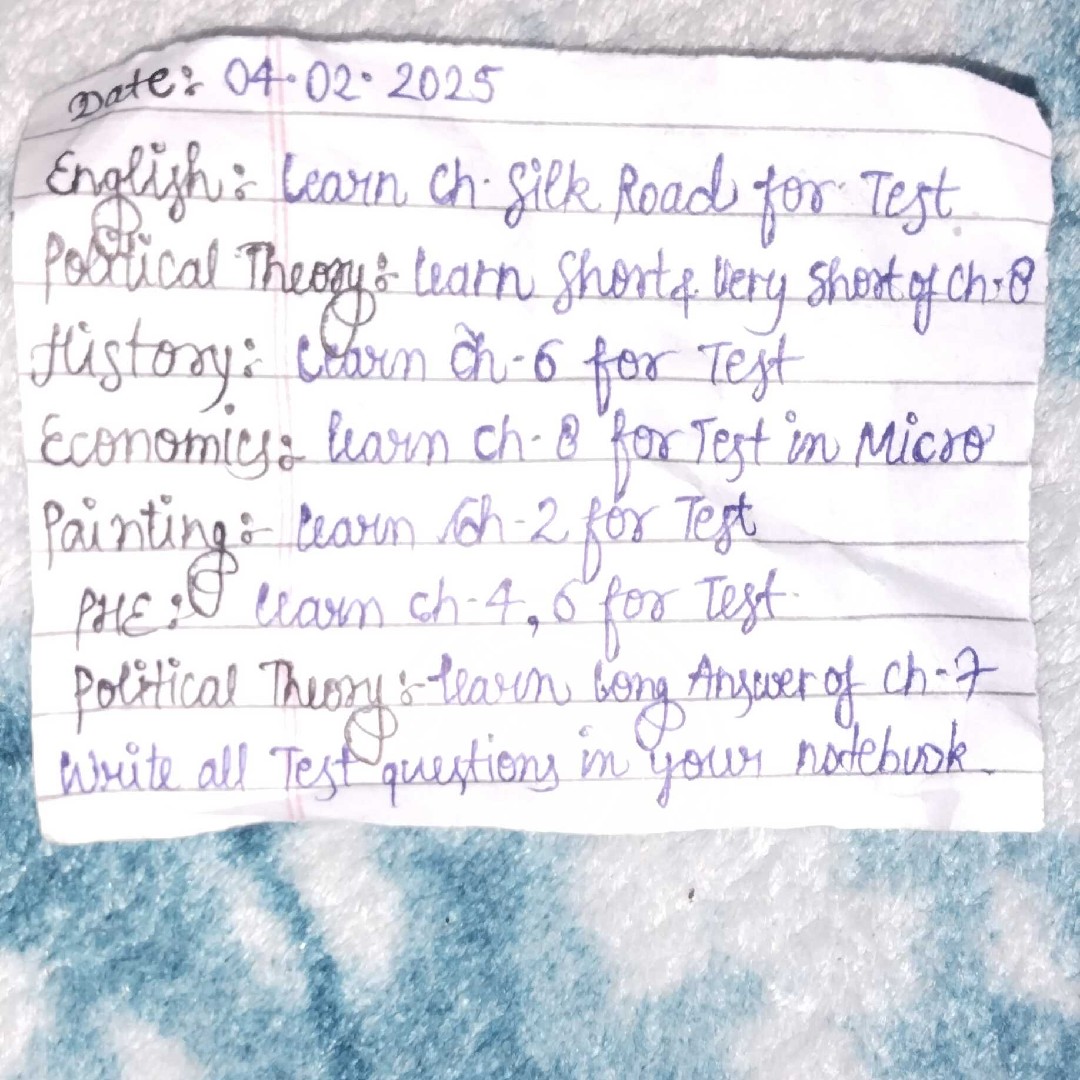 Date: 04.02.2025
English: Learn Ch. Silk Road for Test.
Political Theory:- learn Short & Very Short of Ch-8
History: Learn Ch-6 for Test
Economics: learn Ch-8 for Test in Micro
Painting:- Learn Ch-2 for Test
PHE: Learn ch-4, 6 for Test.
Political Theory:- learn Long Answer of Ch-7
Write all Test questions in your notebook.